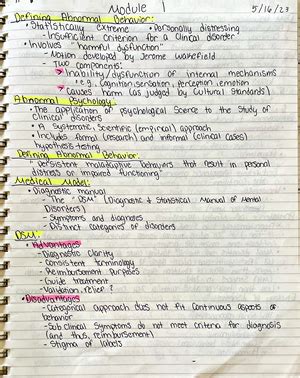 Module 1
5/16/23
Defining Abnormal Behavior:
• Statistically extreme • Personally distressing
- Insufficient criterion for a clinical disorder
• Involves "harmful dysfunction"
- Notion developed by Jerome Wakefield
- Two components:
Inability/dysfunction of internal mechanisms
i.e. Cognition, sensation, perception, emotion
causes harm (as judged by cultural standards)
Abnormal Psychology:
• The application of psychological science to the study of
clinical disorders
• A systematic, scientific (empirical) approach
• Includes formal (research) and informal (clinical cases)
hypothesis-testing
Defining Abnormal Behavior:
"persistent maladaptive behaviors that result in personal
distress or impaired functioning"
Medical Model:
• Diagnostic manual
- The "DSM" (Diagnostic & Statistical Manual of Mental
Disorders)
- Symptoms and diagnoses
- Distinct categories of disorders
DSM:
• Advantages
- Diagnostic Clarity
- Consistent terminology
- Reimbursement purposes
- Guide treatment
- Validation, relief?
• Disadvantages
- Categorical approach does not fit continuous aspects of
behavior
- Sub clinical symptoms do not meet criteria for diagnosis
(and thus, reimbursement)
- Stigma of labels